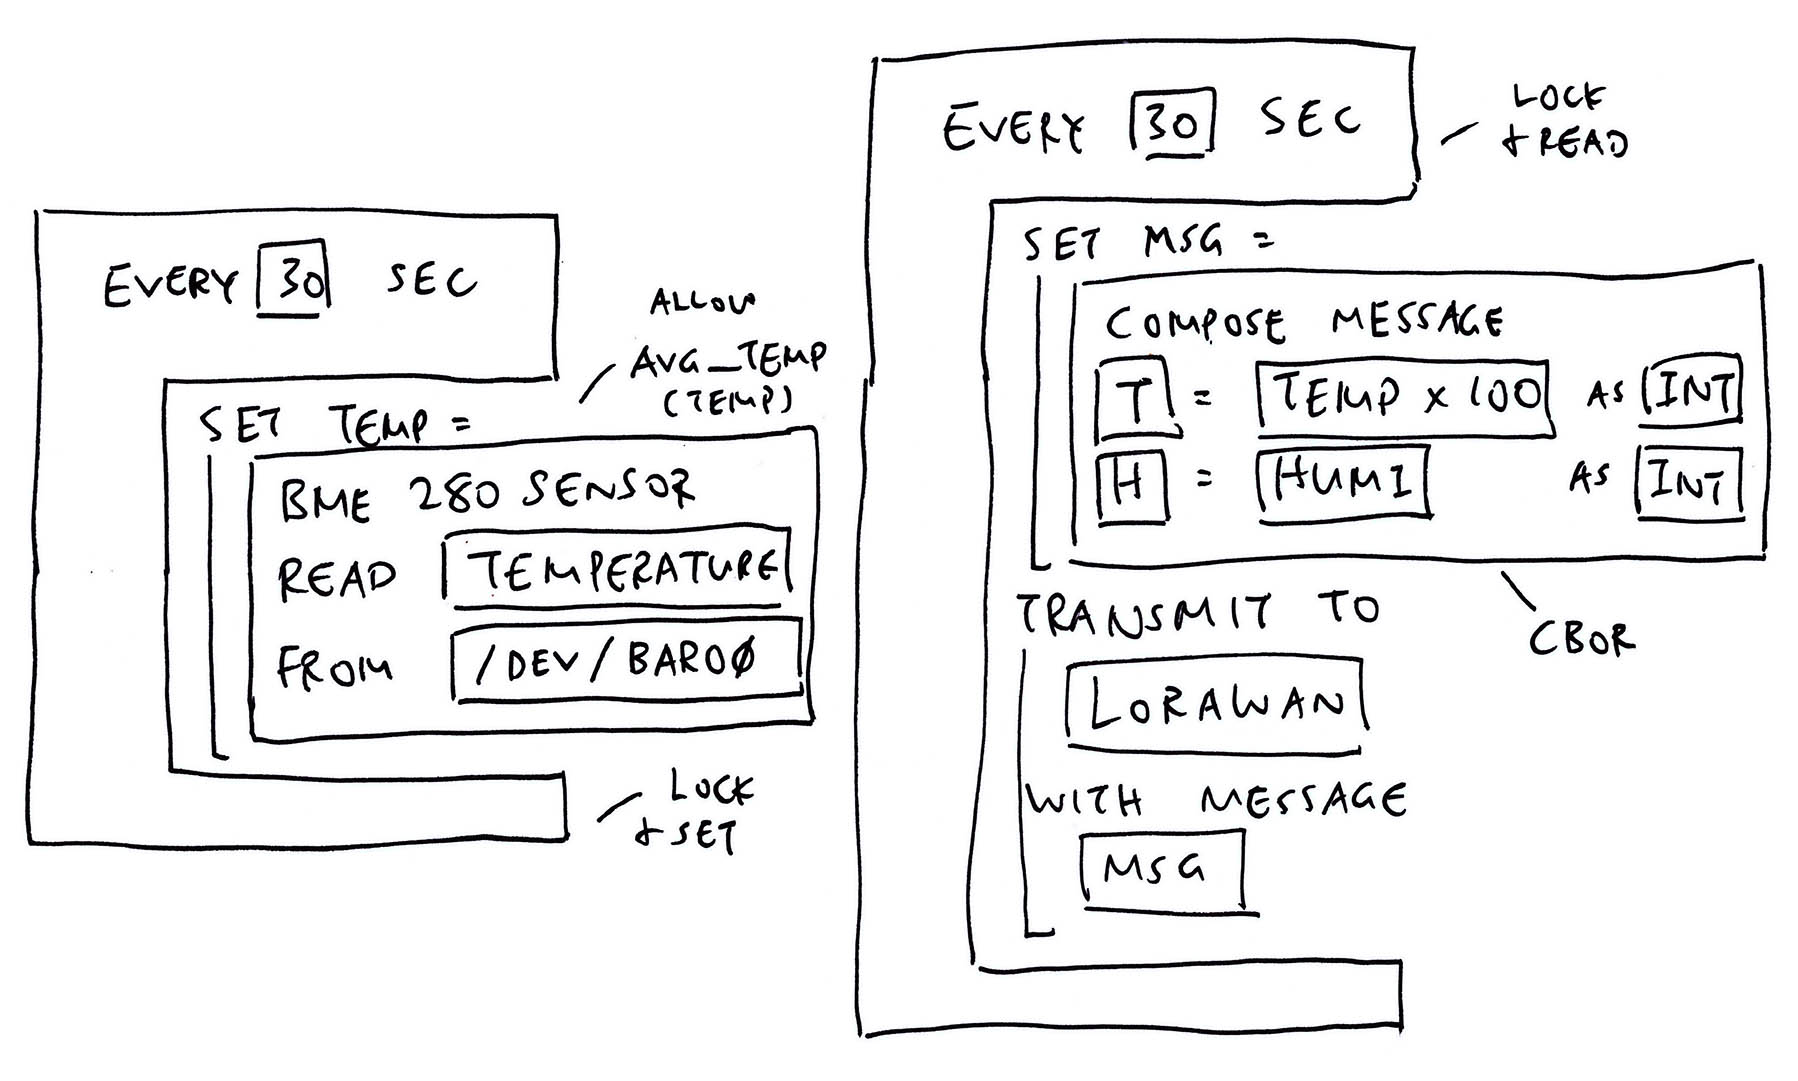 EVERY 30 SEC
ALLOW
AVG_TEMP
(TEMP)
SET TEMP =
BME 280 SENSOR
READ TEMPERATURE
FROM /DEV/BARO0
LOCK
+ SET
EVERY 30 SEC
LOCK
+ READ
SET MSG =
COMPOSE MESSAGE
T = TEMP x 100 AS INT
H = HUMI AS INT
CBOR
TRANSMIT TO
LORAWAN
WITH MESSAGE
MSG